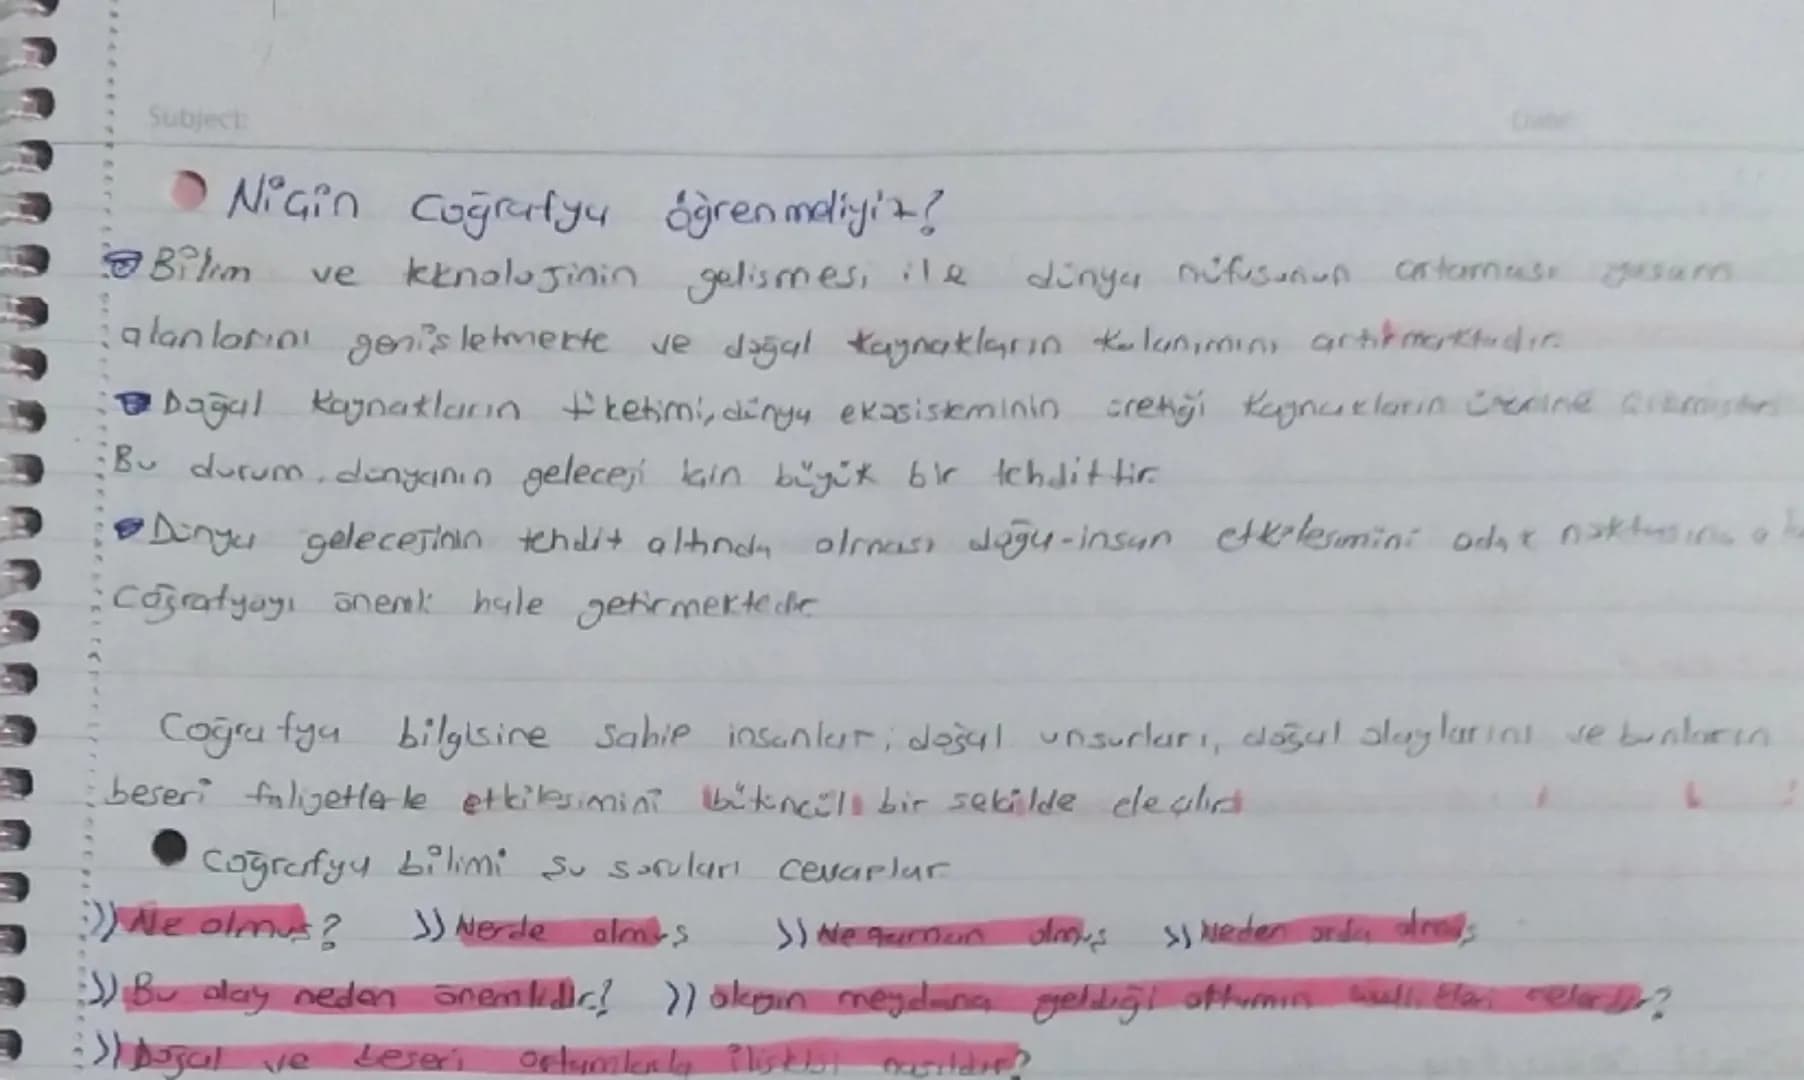 Subject:
Niçin Coğrafya öğrenmeliyiz?
Bilim ve teknolojinin gelismesi ile dünya nüfusunun artaması yasam
alanlarını genisletmekte ve doğal kaynakların kulanımını artırmaktadır.
Doğal kaynakların tüketimi, dünya ekosisteminin üretiği kaynakların üzerine
Bu durum, dünyanın geleceği için büyük bir tehdittir.
Dünya geleceğinin tehdit altında olması doğa-insan etkilesimini odak noktasına
Coğrafyayı önemli hale getirmektedir
Coğrafya bilgisine sahip insanlar; doğal unsurları, doğal olaylarını ve bunların
beseri faliyetlerle etkilesimini bütüncül bir sekilde ele alır
Coğrafya bilimi su soruları cevaplar
>> Ne olmus? >> Nerde olmus >> Ne zaman olmus >> Neden orda olmus
>> Bu olay neden önemlidir? >> olayın meydana geldiği ortamın özellikleri nelerdir?
>> Doğal ve beseri ortamlarla iliskisi nasıldır?